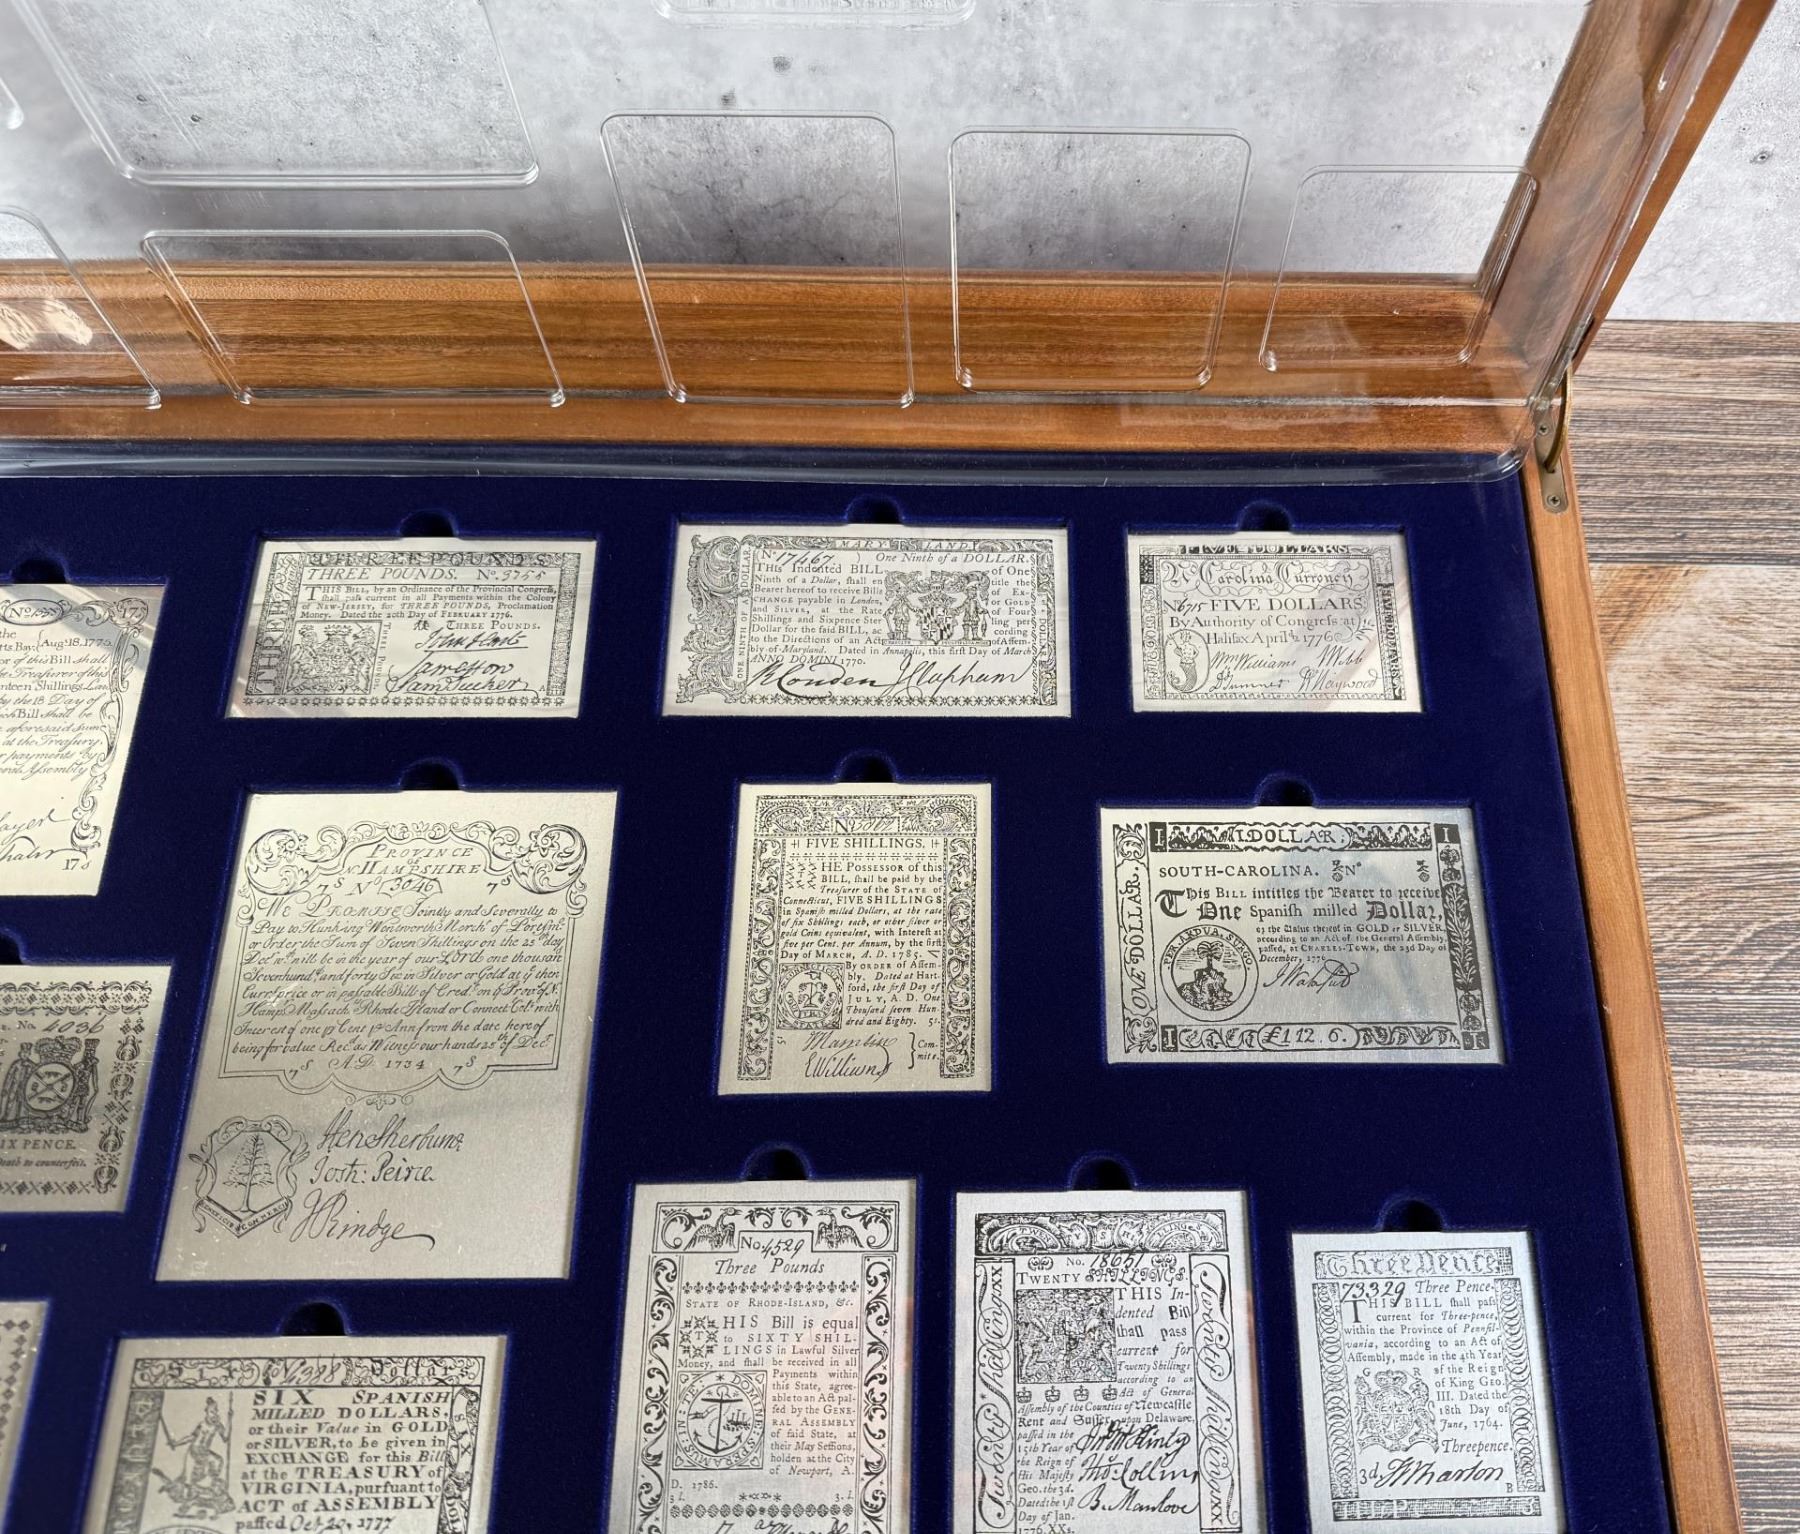 THREE POUNDS
THREE POUNDS. No. 3755
THIS BILL, by an Ordinance of the Provincial Congress,
shall pass current in all Payments within the Colony
of NEW-JERSEY, for THREE POUNDS, Proclamation
Money. Dated the 20th Day of FEBRUARY 1776.
THREE POUNDS.
THREE
Three Pounds.
John Hart
Jameston
Sam Tucker
MARYLAND.
ONE NINTH OF A DOLLAR
No 17467 One Ninth of a DOLLAR.
THIS Indented BILL of One
Ninth of a Dollar, shall en title the
Bearer hereof to receive Bills of Ex-
CHANGE payable in London, or GOLD
and SILVER, at the Rate of Four
Shillings and Sixpence Ster ling per
Dollar for the said BILL, ac cording
to the Directions of an Act of Assem-
bly of Maryland. Dated in Annapolis, this first Day of March
ANNO DOMINI 1770.
R Couden J Clapham
FIVE DOLLARS
No Carolina Currency
No 6715 FIVE DOLLARS
By Authority of Congress at
Halifax April 2 1776
Wm Williams J Webb
J Sumner W Haywood
No 1535 173
the Aug 18. 1775
tts Bay.
or of this Bill shall
he Treasurer of this
nteen Shillings
by the 18 Day of
ich Bill shall be
e aforesaid Sum
at the Treasury
r payments by
eral Assembly
17 s
PROVINCE
of
N HAMPSHIRE
7s No 3046 7s
We PROMISE Jointly and Severally to
Pay to Hunking Wentworth Merch of Portsm
or Order the Sum of Seven Shillings on the 25 day
Decr wch will be in the year of our LORD one thousand
Sevenhundd and forty Six in Silver or Gold at ye then
Currt price or in passable Bills of Cred on ye Provs of N
Hamps Massach Rhode Island or Connect Cols with
Interest of one p Cent p Ann from the date here of
being for value Recd as Witness our hands 25th of Decr
7s A.D. 1734 7s
Hen Sherburne
Josh: Peirce
J Rindge
FIVE SHILLINGS.
THE POSSESSOR of this
BILL, shall be paid by the
Treasurer of the STATE of
Connecticut, FIVE SHILLINGS
in Spanish milled Dollars, at the rate
of six Shillings each, or other silver or
gold Coins equivalent, with Interest at
five per Cent. per Annum, by the first
Day of MARCH, A. D. 1785.
By ORDER of Assem-
bly. Dated at Hart-
ford, the first Day of
JULY, A. D. One
Thousand seven Hun-
dred and Eighty. 5s.
Com-
mittee.
I DOLLAR.
I I
ONE DOLLAR.
SOUTH-CAROLINA. No
This BILL intitles the Bearer to receive
One Spanish milled Dollar,
or the Value thereof in GOLD or SILVER,
according to an Act of the General Assembly,
passed, at CHARLES-TOWN, the 23d Day of
December, 1776
PER ARDUA SURGO
£1 12. 6.
I I
No. 4036
IX PENCE.
Death to counterfeit.
No 4529
Three Pounds
STATE OF RHODE-ISLAND, &c.
THIS Bill is equal
to SIXTY SHIL-
LINGS in Lawful Silver
Money, and shall be received in all
Payments within
this State, agree-
able to an Act pas-
sed by the GENE-
RAL ASSEMBLY
of said State, at
their May Sessions,
holden at the City
of Newport, A.
D. 1786.
3 l. 3. l.
IN TE DOMINE SPERAMUS
No. 18651
TWENTY SHILLINGS.
THIS In-
dented Bill
shall pass
current for
Twenty Shillings
according to an
Act of General
Assembly of the Counties of Newcastle
Kent and Sussex upon Delaware,
passed in the
15th Year of
the Reign of
His Majesty
Geo. the 3d.
Dated the 1st
Day of Jan.
1776. XXs.
Twenty Shillings XX
Twenty Shillings XX
Jn McKinly
Thos Collins
B. Manlove
Three Pence
73329 Three Pence.
THIS BILL shall pass
current for Three-pence,
within the Province of Pennsil-
vania, according to an Act of
Assembly, made in the 4th Year
G R of the Reign
of King Geo.
III. Dated the
18th Day of
June, 1764.
Threepence.
3d. J Wharton
B
SIX SPANISH
MILLED DOLLARS,
or their Value in GOLD
or SILVER, to be given in
EXCHANGE for this Bill
at the TREASURY of
VIRGINIA, pursuant to
ACT of ASSEMBLY
passed Oct 20, 1777